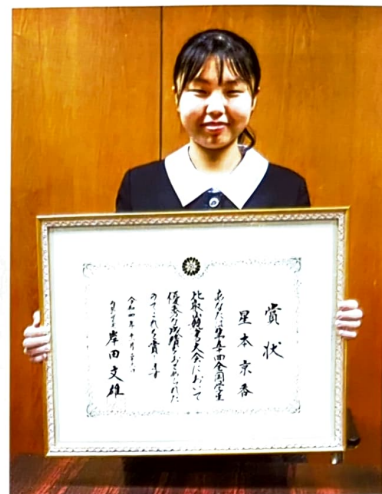 賞状
星本京香
あなたは第五十回全国学生
比叡山競書大会において
優秀な成績をおさめられた
のでこれを賞します
令和四年十月二十
内閣総理大臣
岸田文雄